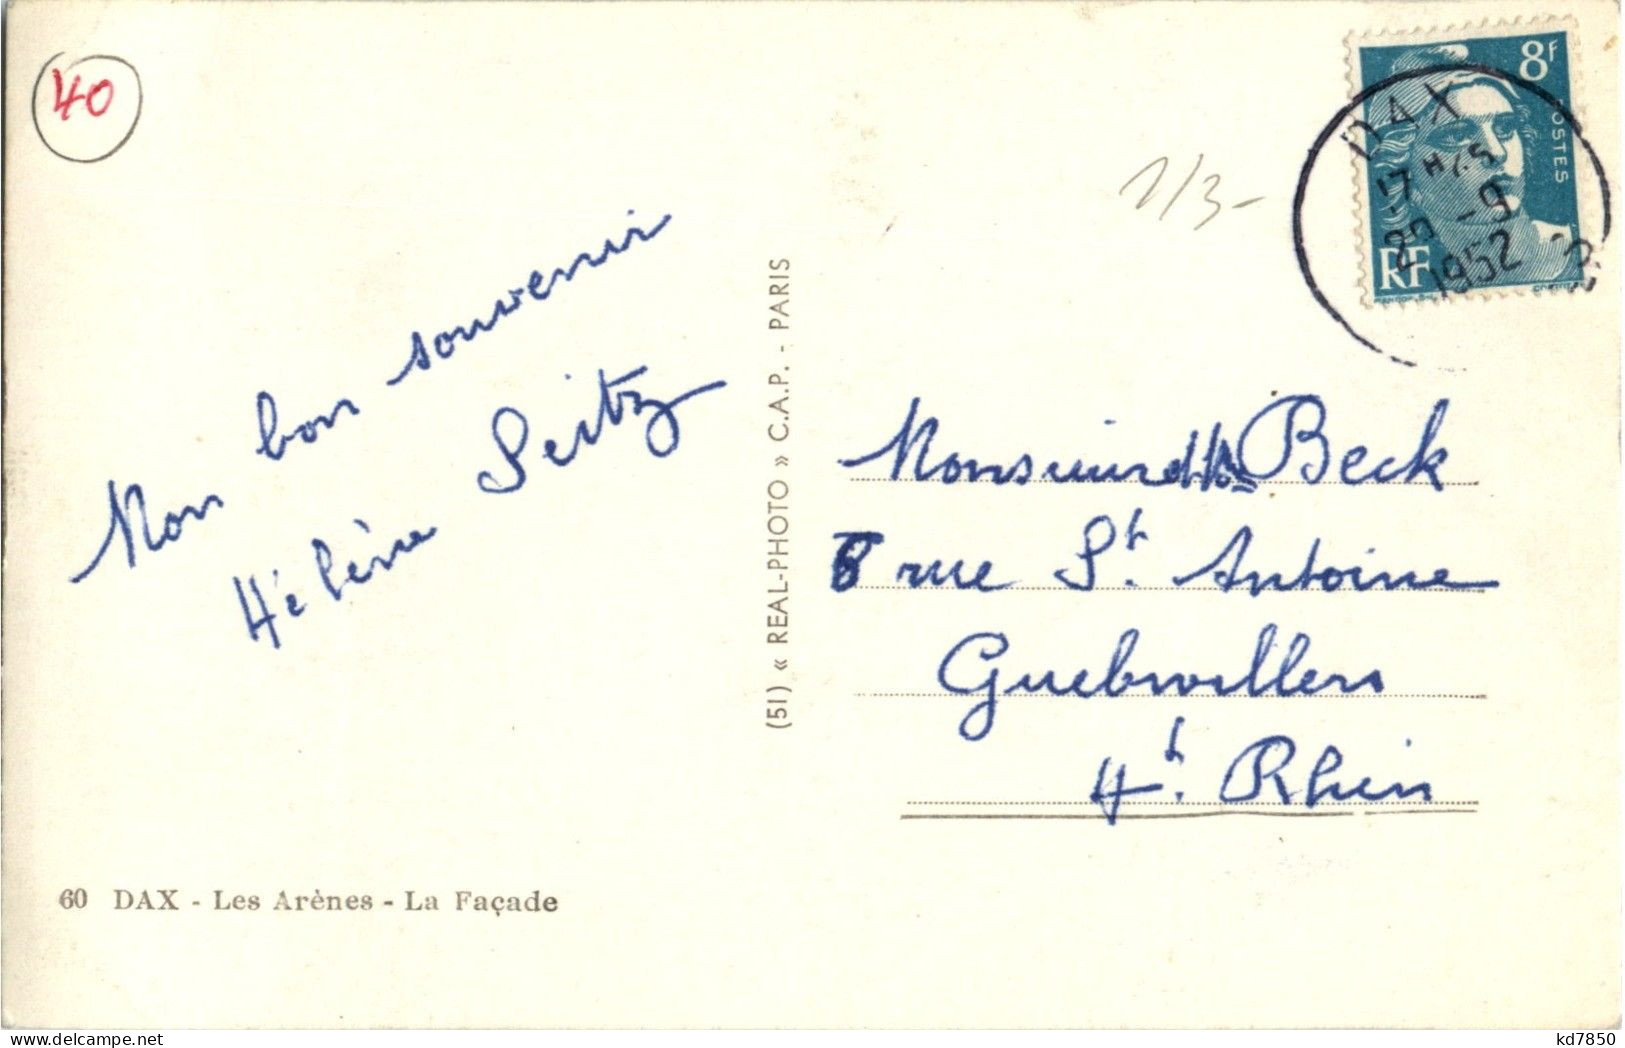 40
1/3-
8F
POSTES
RF
DAX
17 H45
25 -9
1952
Mon bon souvenir
Hélène Seitz
(51) « REAL-PHOTO » C.A.P. - PARIS
Monsieur et Me Beck
8 rue St. Antoine
Guebwiller
Ht. Rhin
60 DAX - Les Arènes - La Façade
kd7850